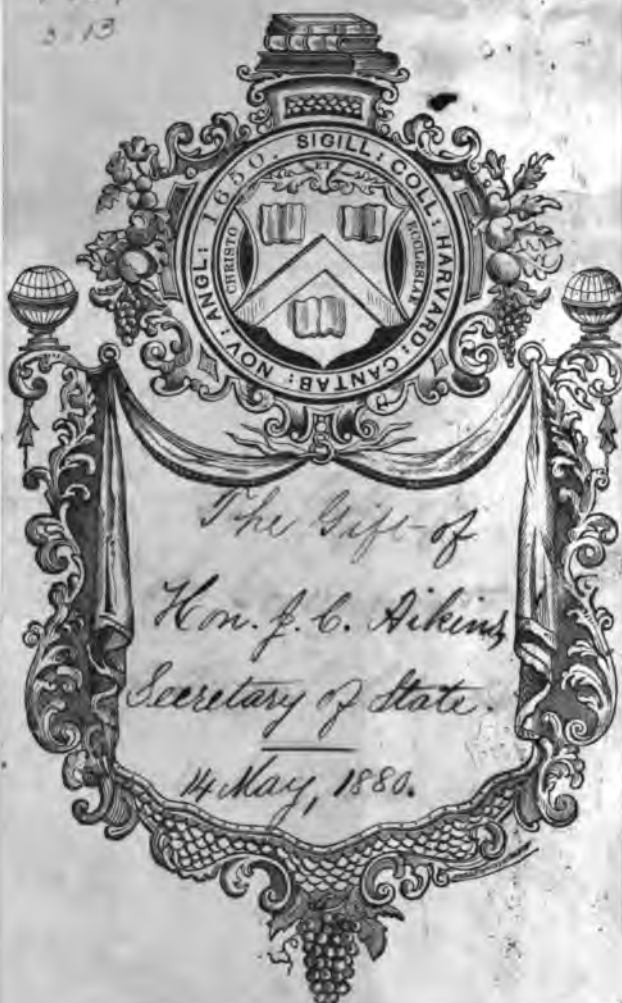 3-13
SIGILL: COLL: HARVARD: CANTAB: NOV: ANGL: 1650.
CHRISTO
ET
ECCLESIAE
The Gift of
Hon. J. C. Aikins,
Secretary of State.
14 May, 1880.